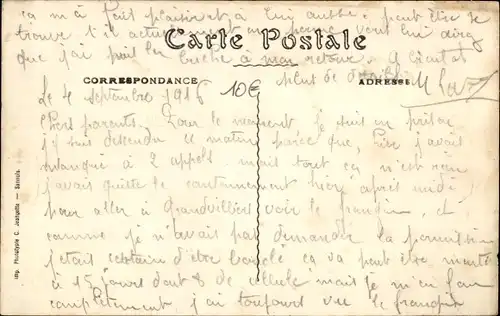 ça m'a fait plaisir et à lui aussi. peut être se
trouve t il actuellement en perme vont lui dire
que j'ai pris la cuche à mon retour.
Carte Postale
plus de détails
CORRESPONDANCE
ADRESSE
10€
Le 4 septembre 1916
Chers parents. Pour le moment je suis en prison
j'y suis descendu ce matin parce que, hier j'avais
manqué à 2 appels mais tout ça n'est rien
j'avais quitté le cantonnement hier après midi
pour aller à Grandvilliers voir le frangin, et
comme je n'avais pas demandé la permission
j'étais certain d'être bouclé ça va peut être monter
à 15 jours dont 8 de cellule mais je m'en fou
complètement j'ai toujours vu le frangin
Imp. Phototypie C. — Senlis.